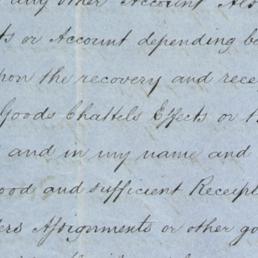 any other Account Als
ts or Account depending be
pon the recovery and rece
Goods Chattels Effects or
and in my name and
ood and sufficient Receipt
ers Assignments or other go